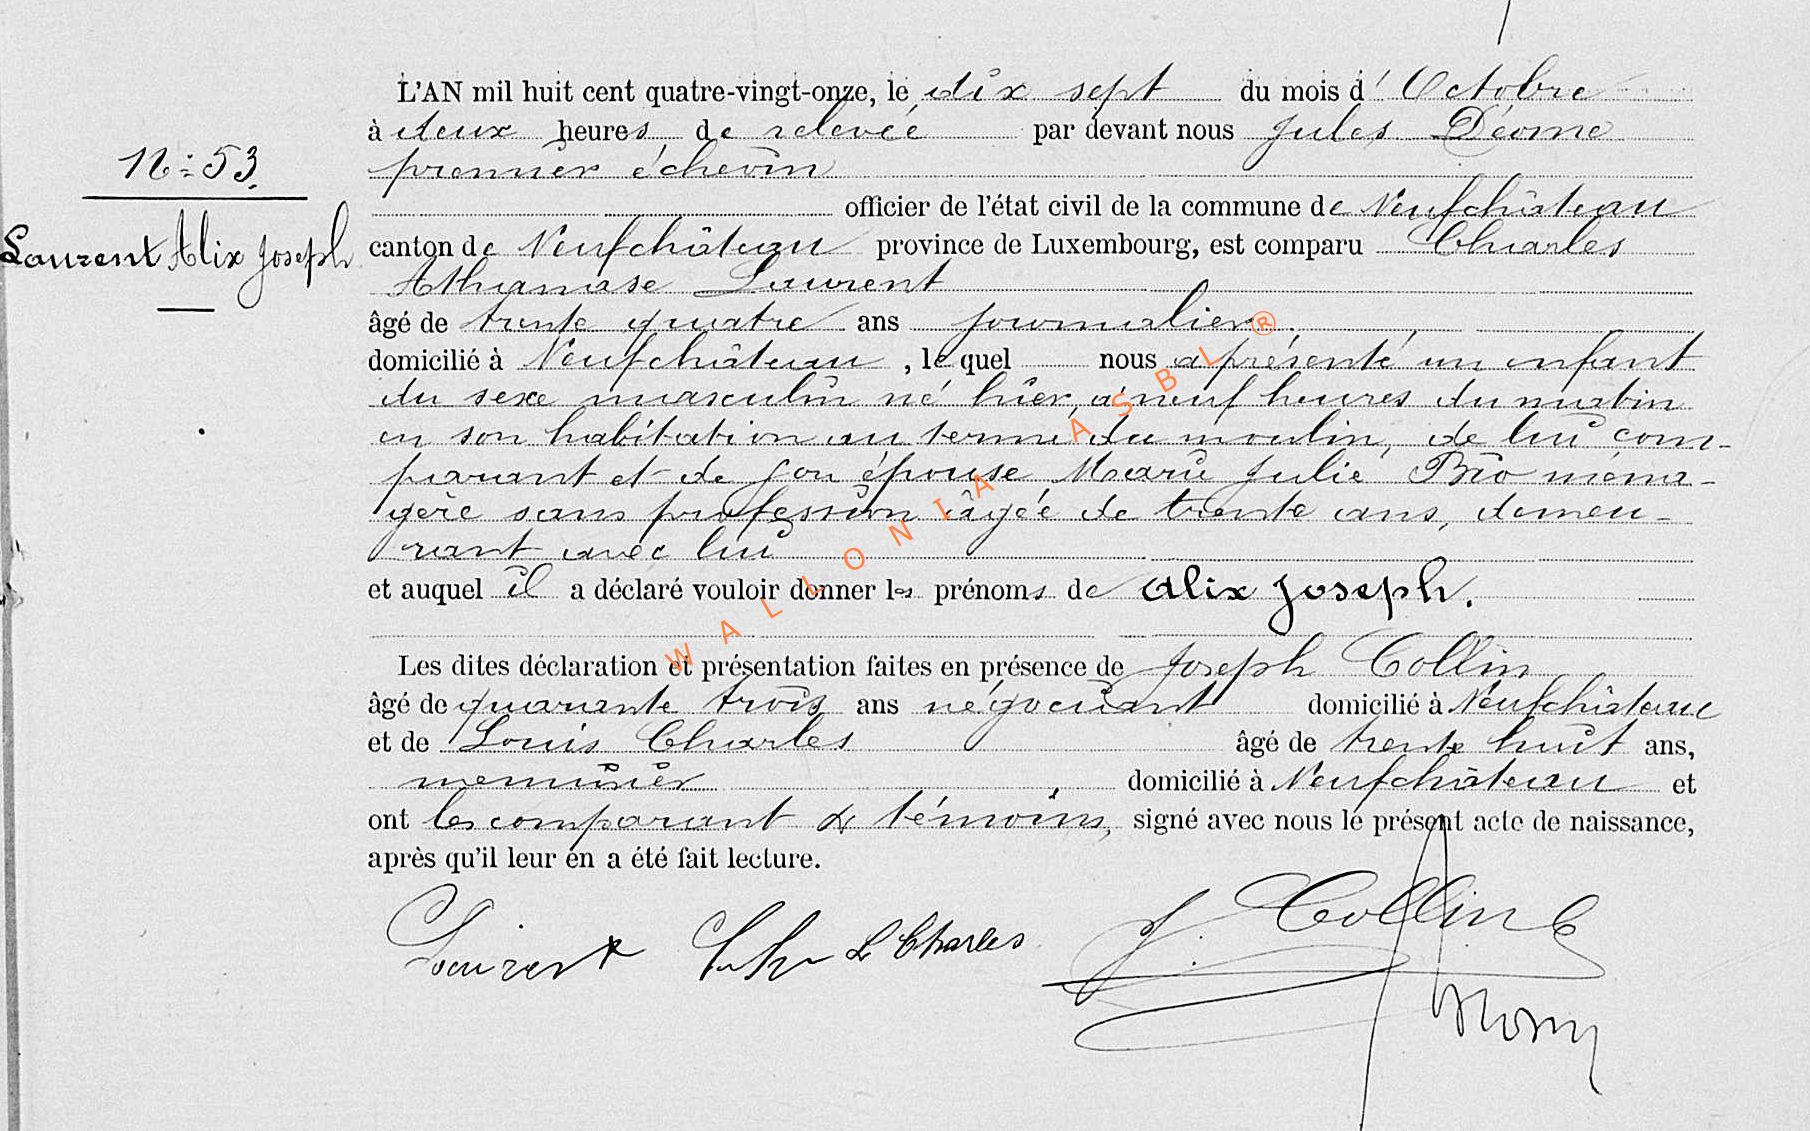 L'AN mil huit cent quatre-vingt-onze, le dix sept du mois d'Octobre
à deux heures de relevée par devant nous Jules Déome
premier échevin
N: 53.
officier de l'état civil de la commune de Neufchâteau
Laurent Alix Joseph
canton de Neufchâteau province de Luxembourg, est comparu Charles
Athanase Laurent
âgé de trente quatre ans journalier
domicilié à Neufchâteau, le quel nous a présenté un enfant
du sexe masculin né hier, à neuf heures du matin
en son habitation au terme du moulin, de lui com-
parant et de son épouse Marie Julie Bio ména-
gère sans profession âgée de trente ans, demeu-
rant avec lui
et auquel il a déclaré vouloir donner les prénoms de Alix Joseph.
Les dites déclaration et présentation faites en présence de Joseph Collin
âgé de quarante trois ans négociant domicilié à Neufchâteau
et de Louis Charles âgé de trente huit ans,
menuisier domicilié à Neufchâteau et
ont les comparant & témoins, signé avec nous le présent acte de naissance,
après qu'il leur en a été fait lecture.
Laurent L Charles J. Collin
WALLONIA ASBL ®